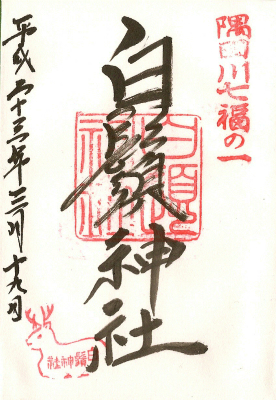 隅田川七福の一
白鬚神社
平成二十三年三月十九日
白鬚神社